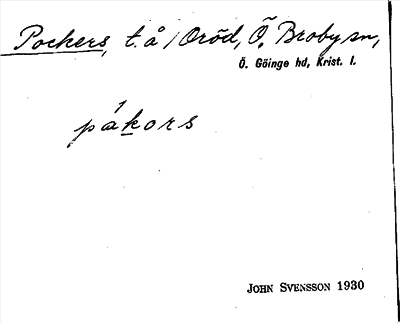 Pockers, t. å / Oröd, Ö. Broby sn,
Ö. Göinge hd, Krist. l.
pákors
JOHN SVENSSON 1930